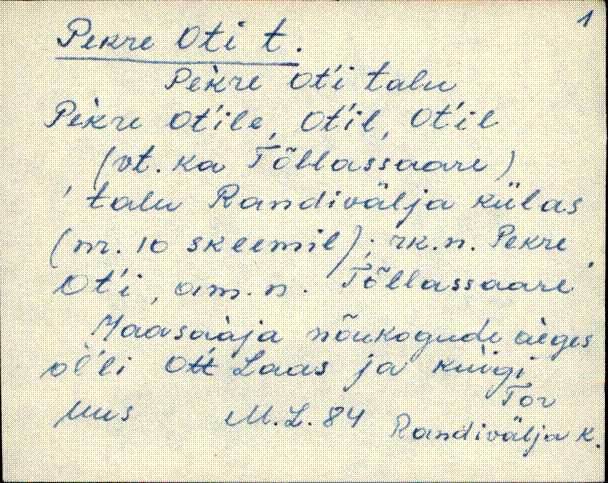 1
Pekre Oti t.
Pèkre Ot'i talu
Pèkre Ot'ile, Ot'il, Ot'il
(vt. ka Tõllassaare)
talu Randivälja külas
(nr. 10 skeemil); rk.n. Pekre
Ot'i, am.n. Tõllassaare
Maasaàja nõukogude àeges
ol'li Ott Laas ja
uus M.L. 84
Tor
Randivälja k.